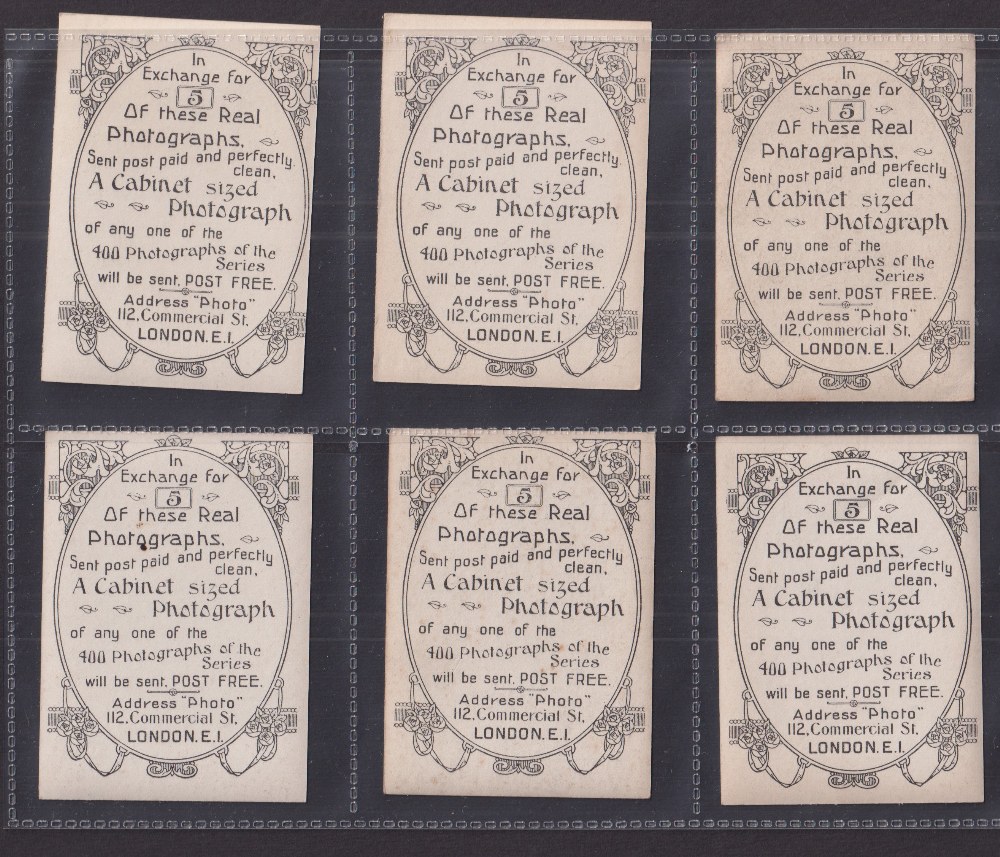 In
Exchange for
5
Of these Real
Photographs,
Sent post paid and perfectly
clean,
A Cabinet sized
Photograph
of any one of the
400 Photographs of the
Series
will be sent, POST FREE.
Address "Photo"
112, Commercial St.
LONDON. E.I.
In
Exchange for
5
Of these Real
Photographs,
Sent post paid and perfectly
clean,
A Cabinet sized
Photograph
of any one of the
400 Photographs of the
Series
will be sent, POST FREE.
Address "Photo"
112, Commercial St.
LONDON. E.I.
In
Exchange for
5
Of these Real
Photographs,
Sent post paid and perfectly
clean,
A Cabinet sized
Photograph
of any one of the
400 Photographs of the
Series
will be sent, POST FREE.
Address "Photo"
112, Commercial St.
LONDON. E.I.
In
Exchange for
5
Of these Real
Photographs,
Sent post paid and perfectly
clean,
A Cabinet sized
Photograph
of any one of the
400 Photographs of the
Series
will be sent, POST FREE.
Address "Photo"
112, Commercial St.
LONDON. E.I.
In
Exchange for
5
Of these Real
Photographs,
Sent post paid and perfectly
clean,
A Cabinet sized
Photograph
of any one of the
400 Photographs of the
Series
will be sent, POST FREE.
Address "Photo"
112, Commercial St.
LONDON. E.I.
In
Exchange for
5
Of these Real
Photographs,
Sent post paid and perfectly
clean,
A Cabinet sized
Photograph
of any one of the
400 Photographs of the
Series
will be sent, POST FREE.
Address "Photo"
112, Commercial St.
LONDON. E.I.